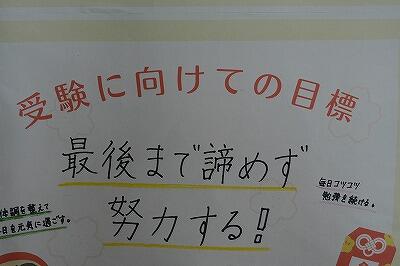 受験に向けての目標
最後まで諦めず
努力する!
毎日コツコツ
勉強を続ける。
体調を整えて
日を元気に過ごす。